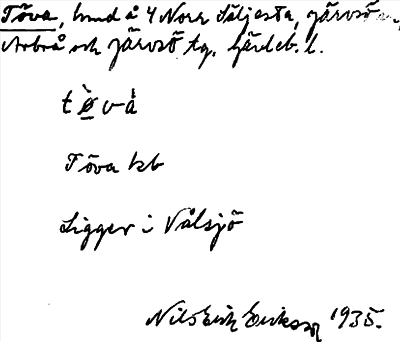 Töva, hmd å 4 Norr Säljesta, Järvsö sn,
Arbrå och Järvsö tg. Gävleb. l.
tø̀vå
Töva kb
Ligger i Vålsjö
Nils Erik Eriksson 1935.